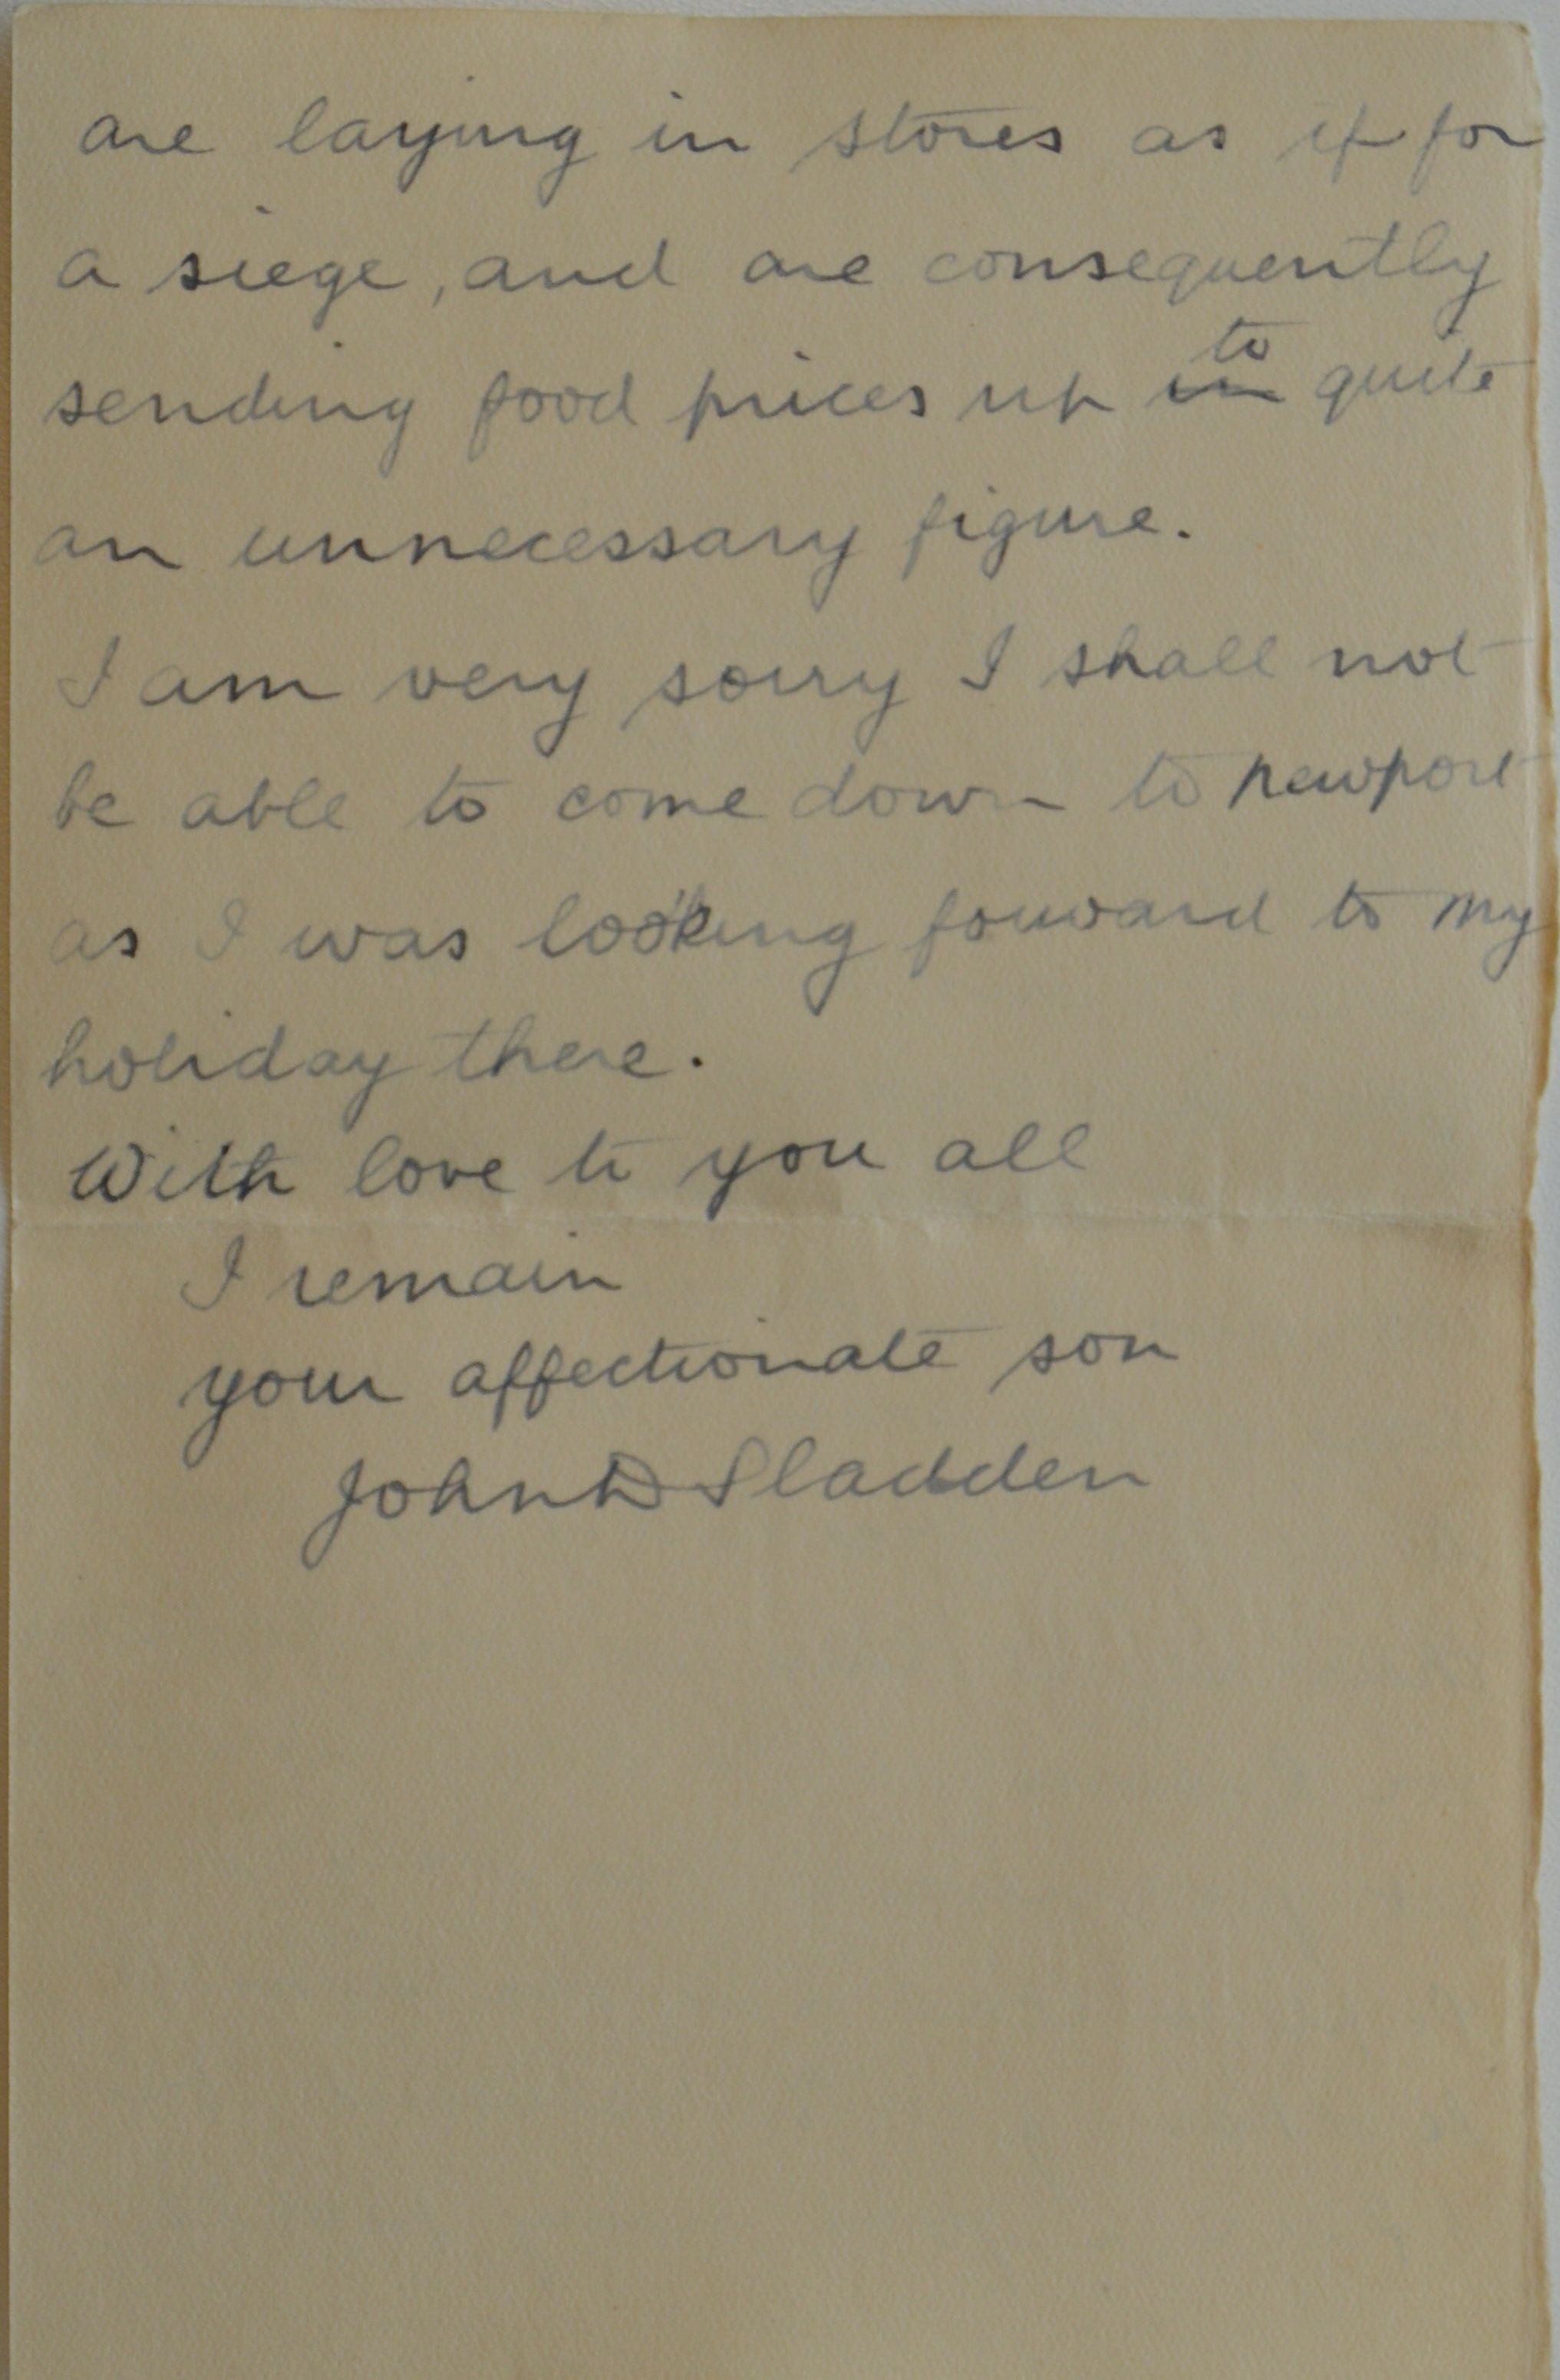 are laying in stores as if for
a siege, and are consequently
sending food prices up in to quite
an unnecessary figure.
I am very sorry I shall not
be able to come down to Newport
as I was looking forward to my
holiday there.
With love to you all
I remain
your affectionate son
John D Sladden